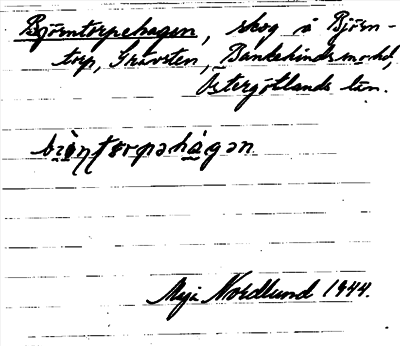 Björntorpehagen, skog å Björn-
torp, Grävsten, Bankekinds
Östergötlands län.
biö̀n̩torpəhágən
Maja Nordlund 1944.